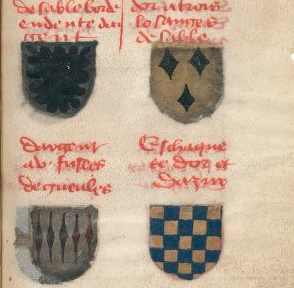 de sable borde
endente dar
gent
dor a trois
losanges
de sable
dargent
au fusees
de gueules
Eschaque
te dor et
dazur